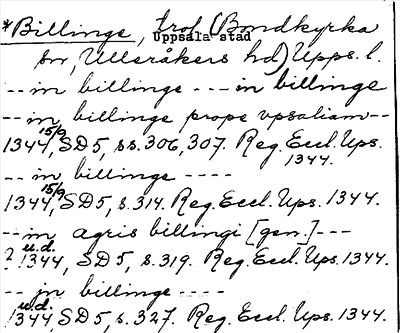 *Billinge, trol (Bondkyrka
Uppsala stad
sn, Ulleråkers hd) Upps. l.
-- in billinge --- in billinge
-- in billinge prope vpsaliam --
1344 15/9, SD 5, ss. 306, 307. Reg. Eccl. Ups.
1344.
-- in billinge ----
1344 15/9, SD 5, s. 314. Reg. Eccl. Ups. 1344.
-- in agris billingi [gen.] ---
? 1344 u.d., SD 5, s. 319. Reg. Eccl. Ups. 1344.
-- in billinge ----
1344 u.d., SD 5, s. 327. Reg. Eccl. Ups. 1344.